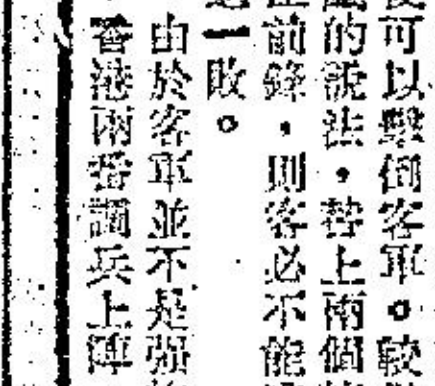 可以擊倒客軍。較
的說法，若上兩個
前鋒，則客必不能
一敗。
由於客軍並不是强
香港兩番調兵上陣